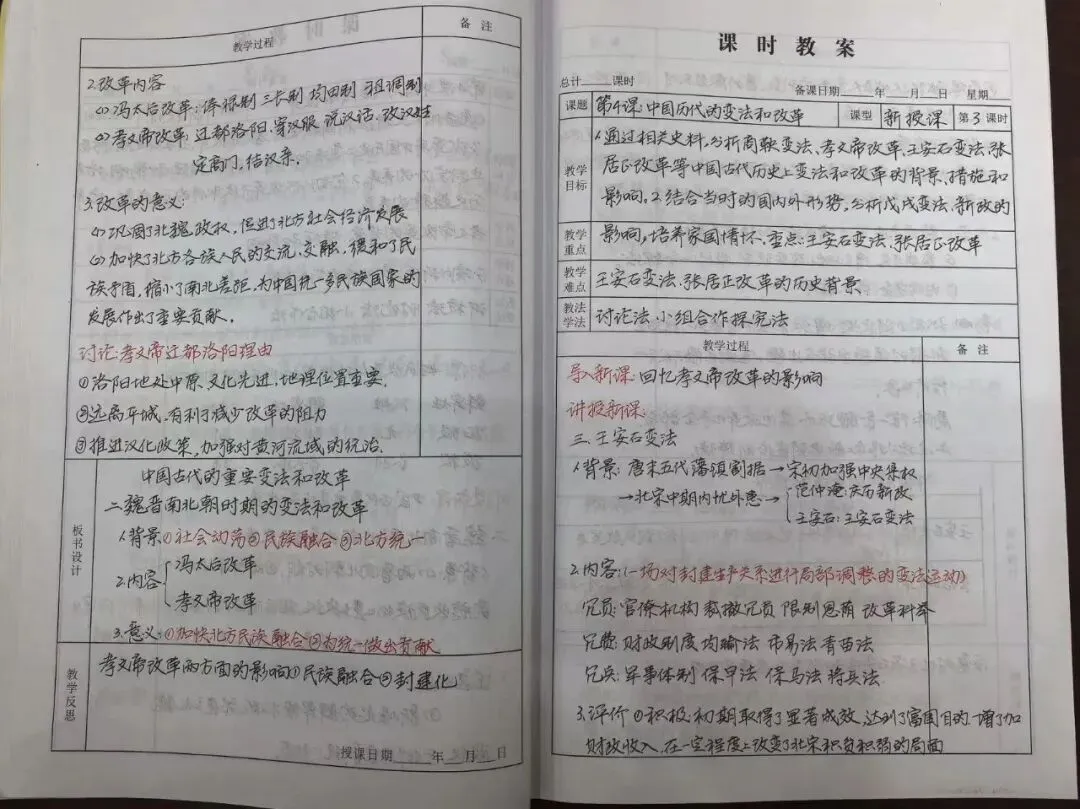 教学过程 备 注
2.改革内容
(1)冯太后改革:俸禄制 三长制 均田制 租调制
(2)孝文帝改革:迁都洛阳、穿汉服 说汉话、改汉姓
定高门、结汉亲。
3.改革的意义:
(1)巩固了北魏政权,促进了北方社会经济发展
(2)加快了北方各族人民的交流、交融,缓和了民
族矛盾,缩小了南北差距,为中国统一多民族国家的
发展作出了重要贡献。
讨论:孝文帝迁都洛阳理由
①洛阳地处中原、文化先进,地理位置重要.
②远离平城,有利于减少改革的阻力
③推进汉化政策,加强对黄河流域的统治.
板书设计
中国古代的重要变法和改革
二、魏晋南北朝时期的变法和改革
1.背景①社会动荡②民族融合③北方统一
2.内容 冯太后改革
孝文帝改革
3.意义:①加快北方民族融合②为统一做出贡献
教学反思
孝文帝改革两方面的影响①民族融合②封建化
授课日期 年 月 日
课 时 教 案
总计 课时 备课日期 年 月 日 星期
课题 第4课:中国历代的变法和改革 课型 新授课 第3课时
教学目标
1.通过相关史料,分析商鞅变法、孝文帝改革、王安石变法、张
居正改革等中国古代历史上变法和改革的背景、措施和
影响。2.结合当时的国内外形势,分析戊戌变法、新政的
教学重点 影响,培养家国情怀。重点:王安石变法、张居正改革
教学难点 王安石变法、张居正改革的历史背景
教法学法 讨论法 小组合作探究法
教学过程 备 注
导入新课:回忆孝文帝改革的影响
讲授新课:
三、王安石变法
1.背景:唐末五代藩镇割据→宋初加强中央集权
→北宋中期内忧外患→ 范仲淹:庆历新政
王安石:王安石变法
2.内容:(一场对封建生产关系进行局部调整的变法运动)
冗员:官僚机构 裁撤冗员 限制恩荫 改革科举
冗费:财政制度 均输法 市易法 青苗法
冗兵:军事体制 保甲法 保马法 将兵法
3.评价 ①积极:初期取得了显著成效,达到了富国目的,增加
财政收入,在一定程度上改变了北宋积贫积弱的局面